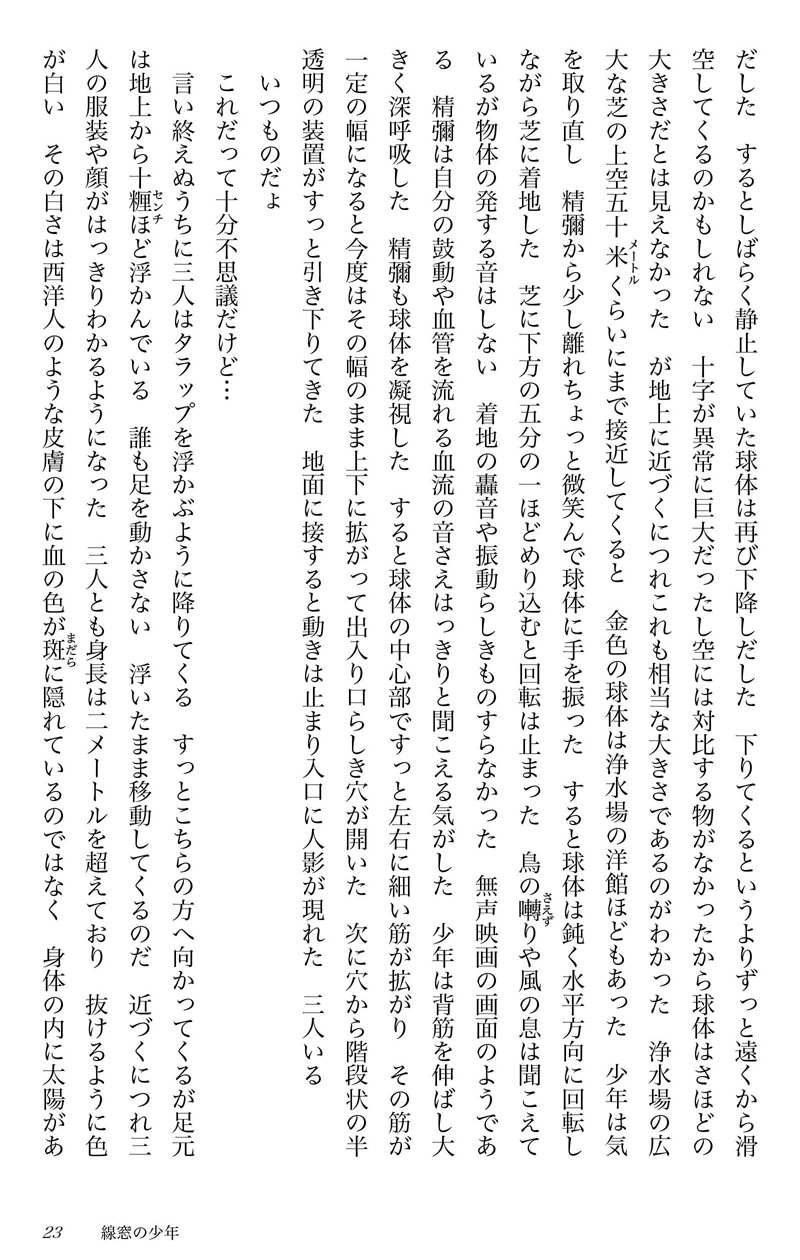 だした　するとしばらく静止していた球体は再び下降しだした　下りてくるというよりずっと遠くから滑
空してくるのかもしれない　十字が異常に巨大だったし空には対比する物がなかったから球体はさほどの
大きさだとは見えなかった　が地上に近づくにつれこれも相当な大きさであるのがわかった　浄水場の広
大な芝の上空五十米メートルくらいにまで接近してくると　金色の球体は浄水場の洋館ほどもあった　少年は気
を取り直し　精彌から少し離れちょっと微笑んで球体に手を振った　すると球体は鈍く水平方向に回転し
ながら芝に着地した　芝に下方の五分の一ほどめり込むと回転は止まった　鳥の囀さえずりや風の息は聞こえて
いるが物体の発する音はしない　着地の轟音や振動らしきものすらなかった　無声映画の画面のようであ
る　精彌は自分の鼓動や血管を流れる血流の音さえはっきりと聞こえる気がした　少年は背筋を伸ばし大
きく深呼吸した　精彌も球体を凝視した　すると球体の中心部ですっと左右に細い筋が拡がり　その筋が
一定の幅になると今度はその幅のまま上下に拡がって出入り口らしき穴が開いた　次に穴から階段状の半
透明の装置がすっと引き下りてきた　地面に接すると動きは止まり入口に人影が現れた　三人いる
いつものだょ
これだって十分不思議だけど…
言い終えぬうちに三人はタラップを浮かぶように降りてくる　すっとこちらの方へ向かってくるが足元
は地上から十糎センチほど浮かんでいる　誰も足を動かさない　浮いたまま移動してくるのだ　近づくにつれ三
人の服装や顔がはっきりわかるようになった　三人とも身長は二メートルを超えており　抜けるように色
が白い　その白さは西洋人のような皮膚の下に血の色が斑まだらに隠れているのではなく　身体の内に太陽があ
23　線窓の少年